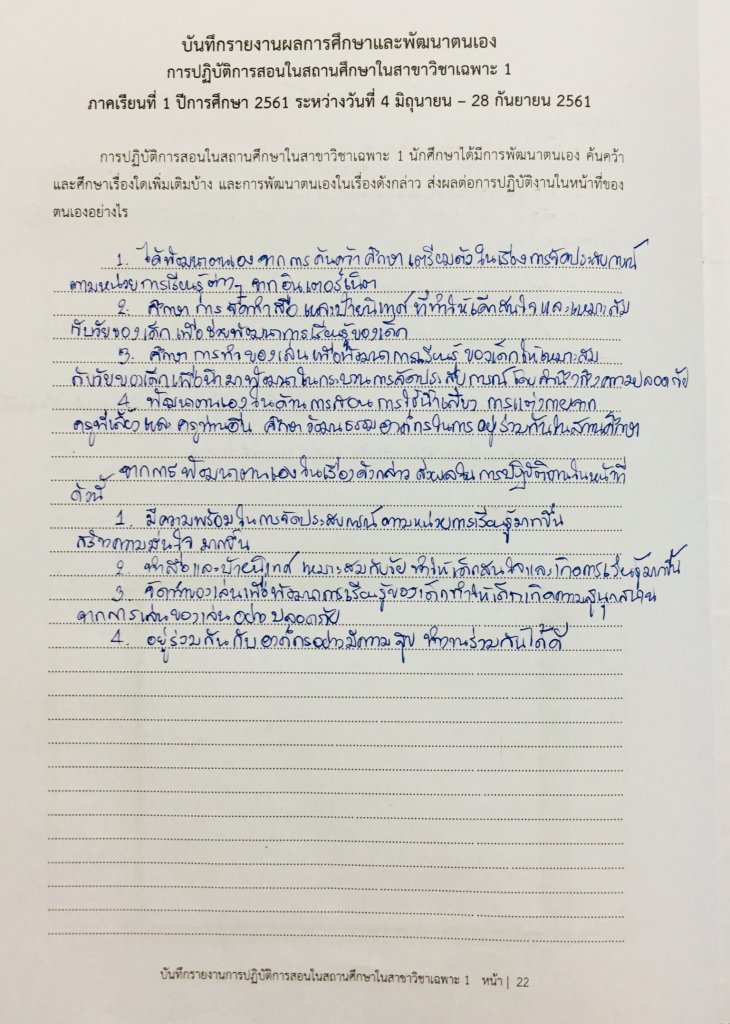 บันทึกรายงานผลการศึกษาและพัฒนาตนเอง
การปฏิบัติการสอนในสถานศึกษาในสาขาวิชาเฉพาะ 1
ภาคเรียนที่ 1 ปีการศึกษา 2561 ระหว่างวันที่ 4 มิถุนายน – 28 กันยายน 2561
การปฏิบัติการสอนในสถานศึกษาในสาขาวิชาเฉพาะ 1 นักศึกษาได้มีการพัฒนาตนเอง ค้นคว้า
และศึกษาเรื่องใดเพิ่มเติมบ้าง และการพัฒนาตนเองในเรื่องดังกล่าว ส่งผลต่อการปฏิบัติงานในหน้าที่ของ
ตนเองอย่างไร
1. ได้พัฒนาตนเอง จากการค้นคว้า ศึกษา เตรียมตัวในเรื่องการจัดประสบการณ์
ตามหน่วยการเรียนรู้ต่างๆ จากอินเตอร์เน็ต
2. ศึกษา การจัดทำสื่อ และป้ายนิเทศ ที่ทำให้เด็กสนใจและเหมาะสม
กับวัยของเด็ก เพื่อช่วยพัฒนาการเรียนรู้ของเด็ก
3. ศึกษา การทำของเล่นเพื่อพัฒนาการเรียนรู้ ของเด็กให้เหมาะสม
กับวัยของเด็กเพื่อนำมาพัฒนาในกระบวนการจัดประสบการณ์ โดยคำนึงถึงความปลอดภัย
4. พัฒนาตนเองในด้านการสอน การใช้น้ำเสียง การแต่งกายจาก
ครูพี่เลี้ยงและครูท่านอื่น ศึกษาวัฒนธรรมองค์กรในการอยู่ร่วมกันในสถานศึกษา
จากการพัฒนาตนเองในเรื่องดังกล่าว ส่งผลในการปฏิบัติงานในหน้าที่
ดังนี้
1. มีความพร้อมในการจัดประสบการณ์ตามหน่วยการเรียนรู้มากขึ้น
สร้างความมั่นใจมากขึ้น
2. ทำสื่อและป้ายนิเทศ เหมาะสมกับวัย ทำให้เด็กสนใจและเกิดการเรียนรู้มากขึ้น
3. จัดทำของเล่นเพื่อพัฒนาการเรียนรู้ของเด็กทำให้เด็กเกิดความสนุกสนาน
จากการเล่นของเล่นอย่างปลอดภัย
4. อยู่ร่วมกันกับองค์กรอย่างมีความสุข ทำงานร่วมกันได้ดี
บันทึกรายงานการปฏิบัติการสอนในสถานศึกษาในสาขาวิชาเฉพาะ 1 หน้า | 22